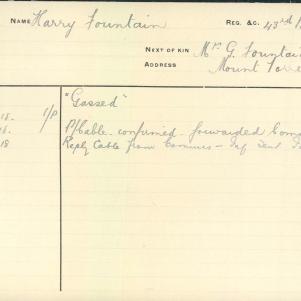 NAME Harry Fountain REG. &C. 43rd B
NEXT OF KIN Mr. G. Fountai
ADDRESS Mount Torre
"Gassed"
15. 1/p P/Cable confirmed forwarded Com
16. Reply Cable from Commrs - Inf sent
18